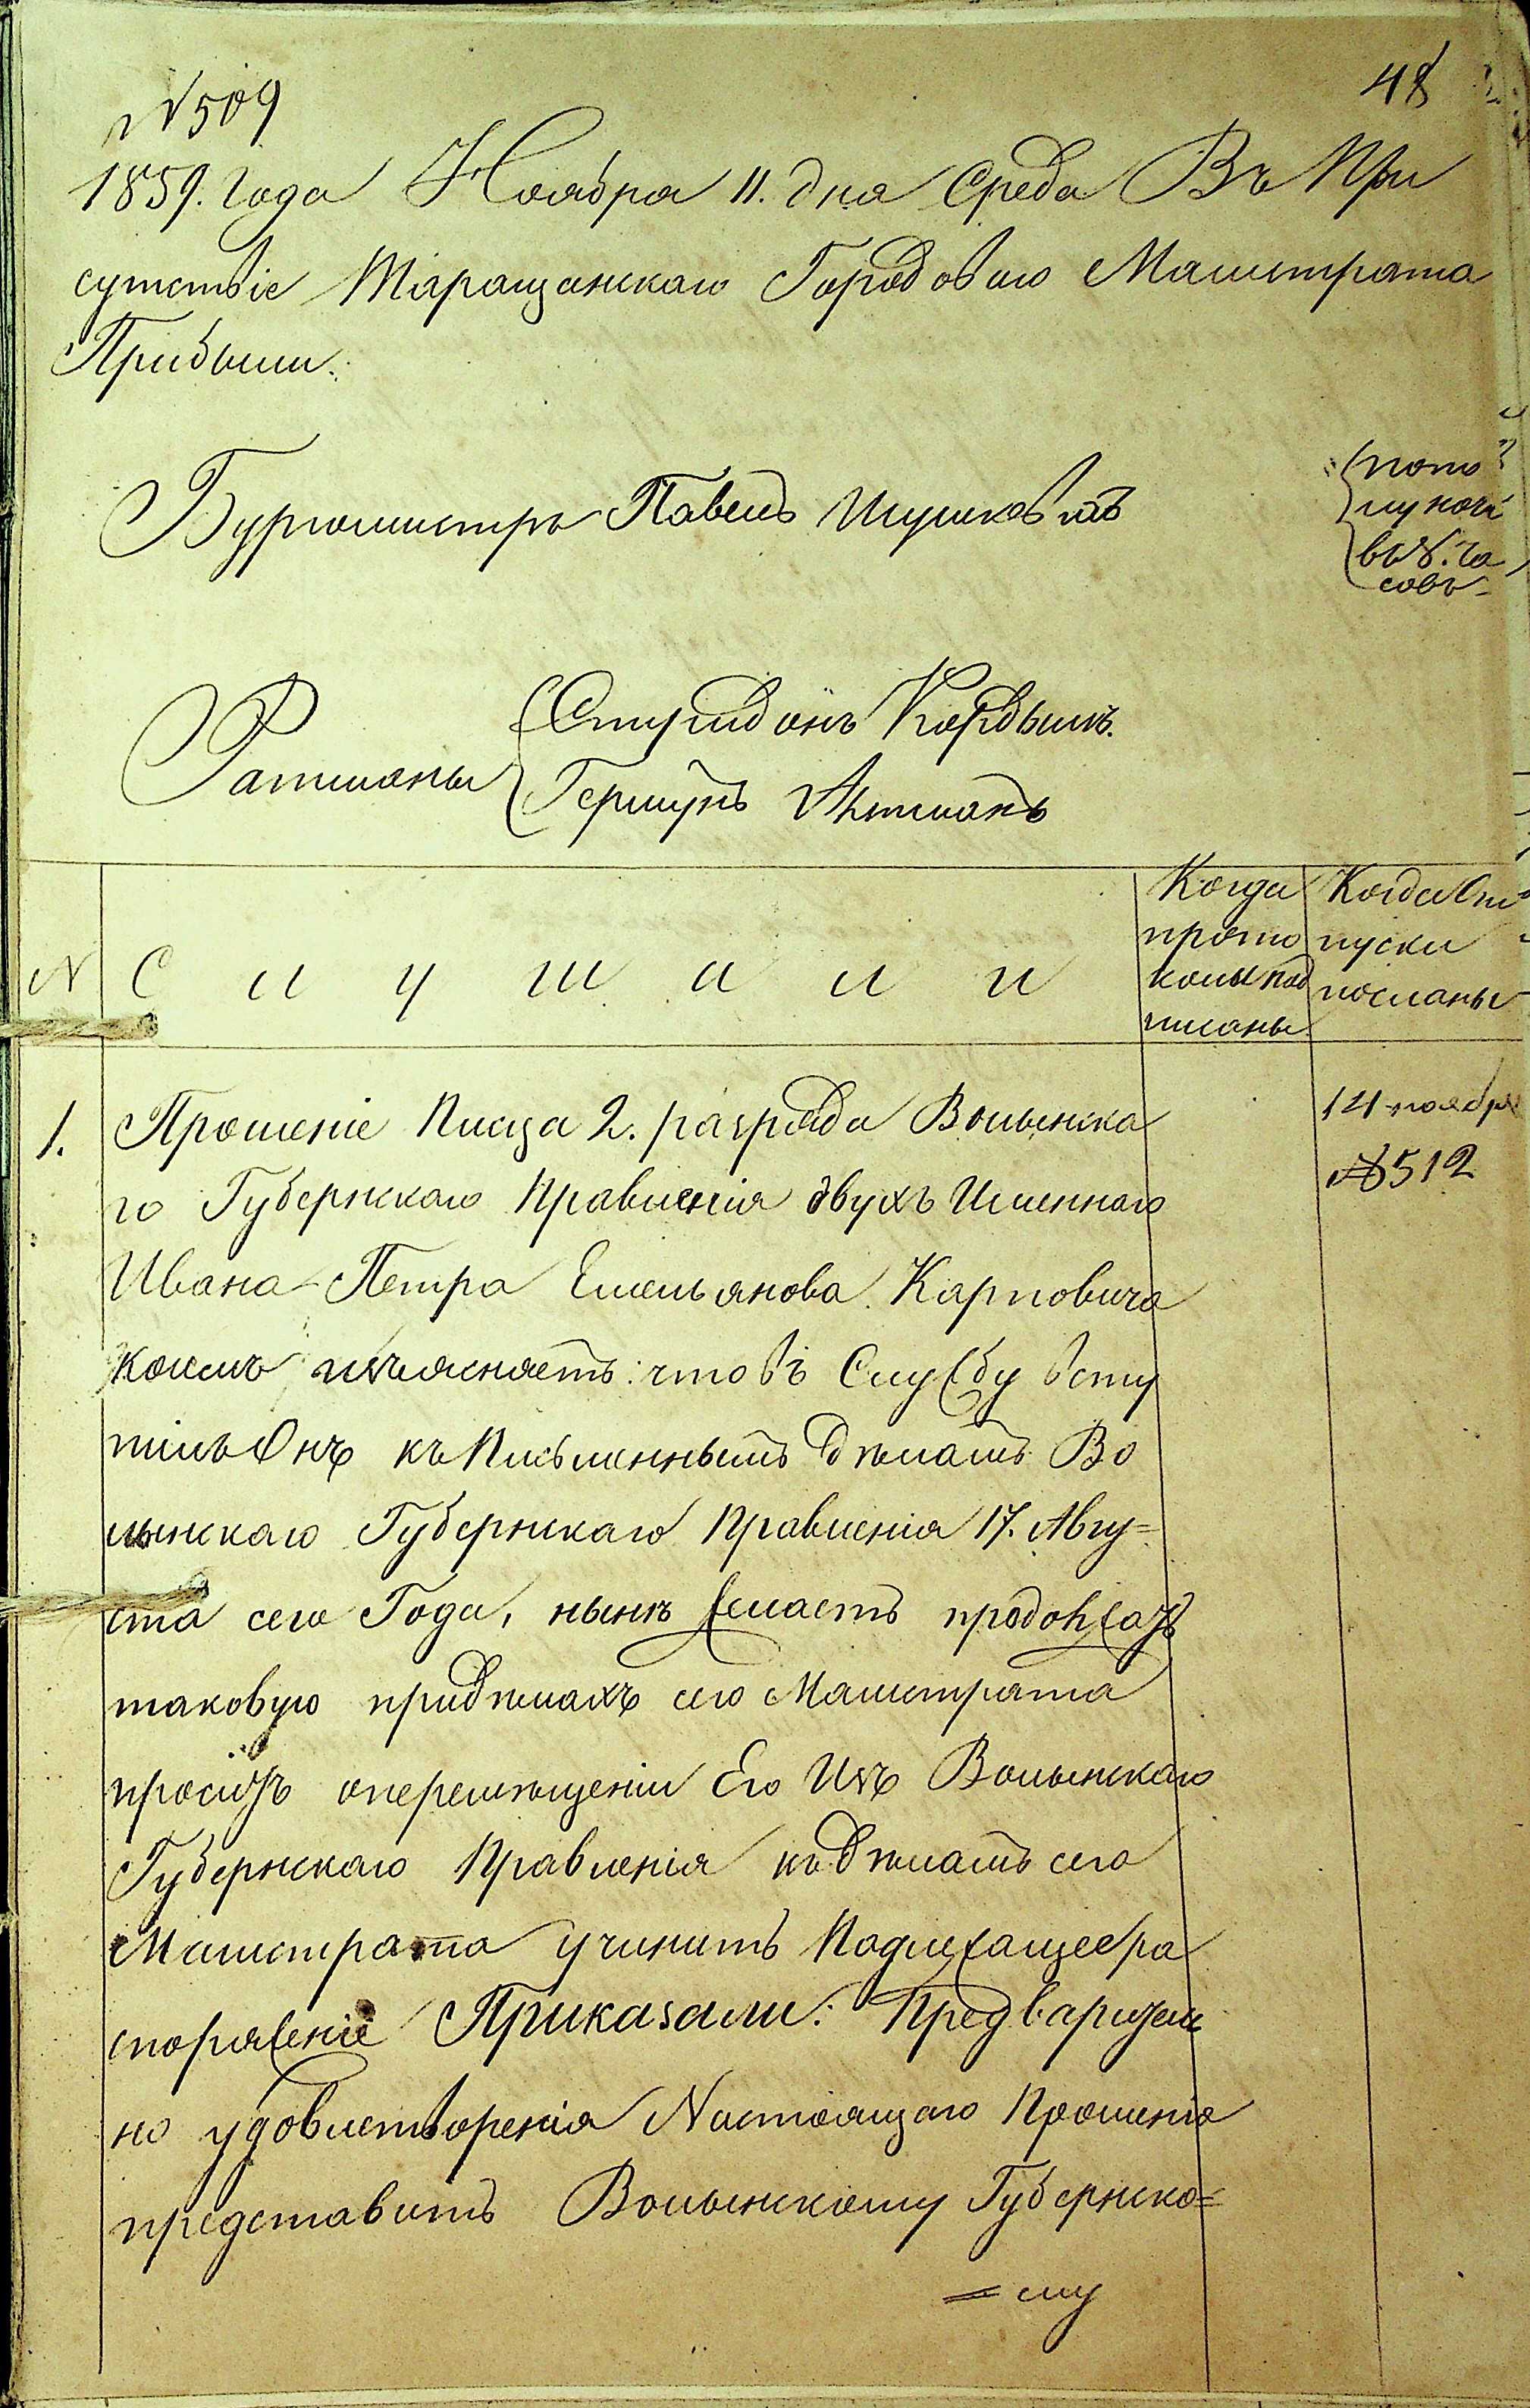 № 509
48
1859. Года Ноября 11. дня Среда Въ При
сутствіе Таращанскаго Городоваго Магистрата
Прибыли:
Бургомистръ Павелъ
по по
луночи
въ 8. ча
совъ
Ратманы
Спиридонъ Кордышъ.
Гершунъ Актманъ
№ С л у ш а л и
Когда
прото
колы под
писаны
Когда От
пуски
посланы
1.
Прошеніе Писца 2. разряда Волынска
го Губернскаго Правленія двухъ Именнаго
Ивана-Петра Емельянова Карповича
коимъ изъясняетъ: что въ Службу всту
пилъ Онъ къ Письменнымъ дѣламъ Во
лынскаго Губернскаго Правленія 17. Авгу=
ста сего Года, нынѣ желаетъ продолжать
таковую при дѣлахъ сего Магистрата
проситъ о перемѣщеніи Его Изъ Волынскаго
Губернскаго Правленія къ дѣламъ сего
Магистрата учинить Подлежащее ра
споряженіе Приказали: Предварител
но удовлетворенія Настоящаго Прошенія
представить Волынскому Губернско=
=му
14 ноября
№ 512